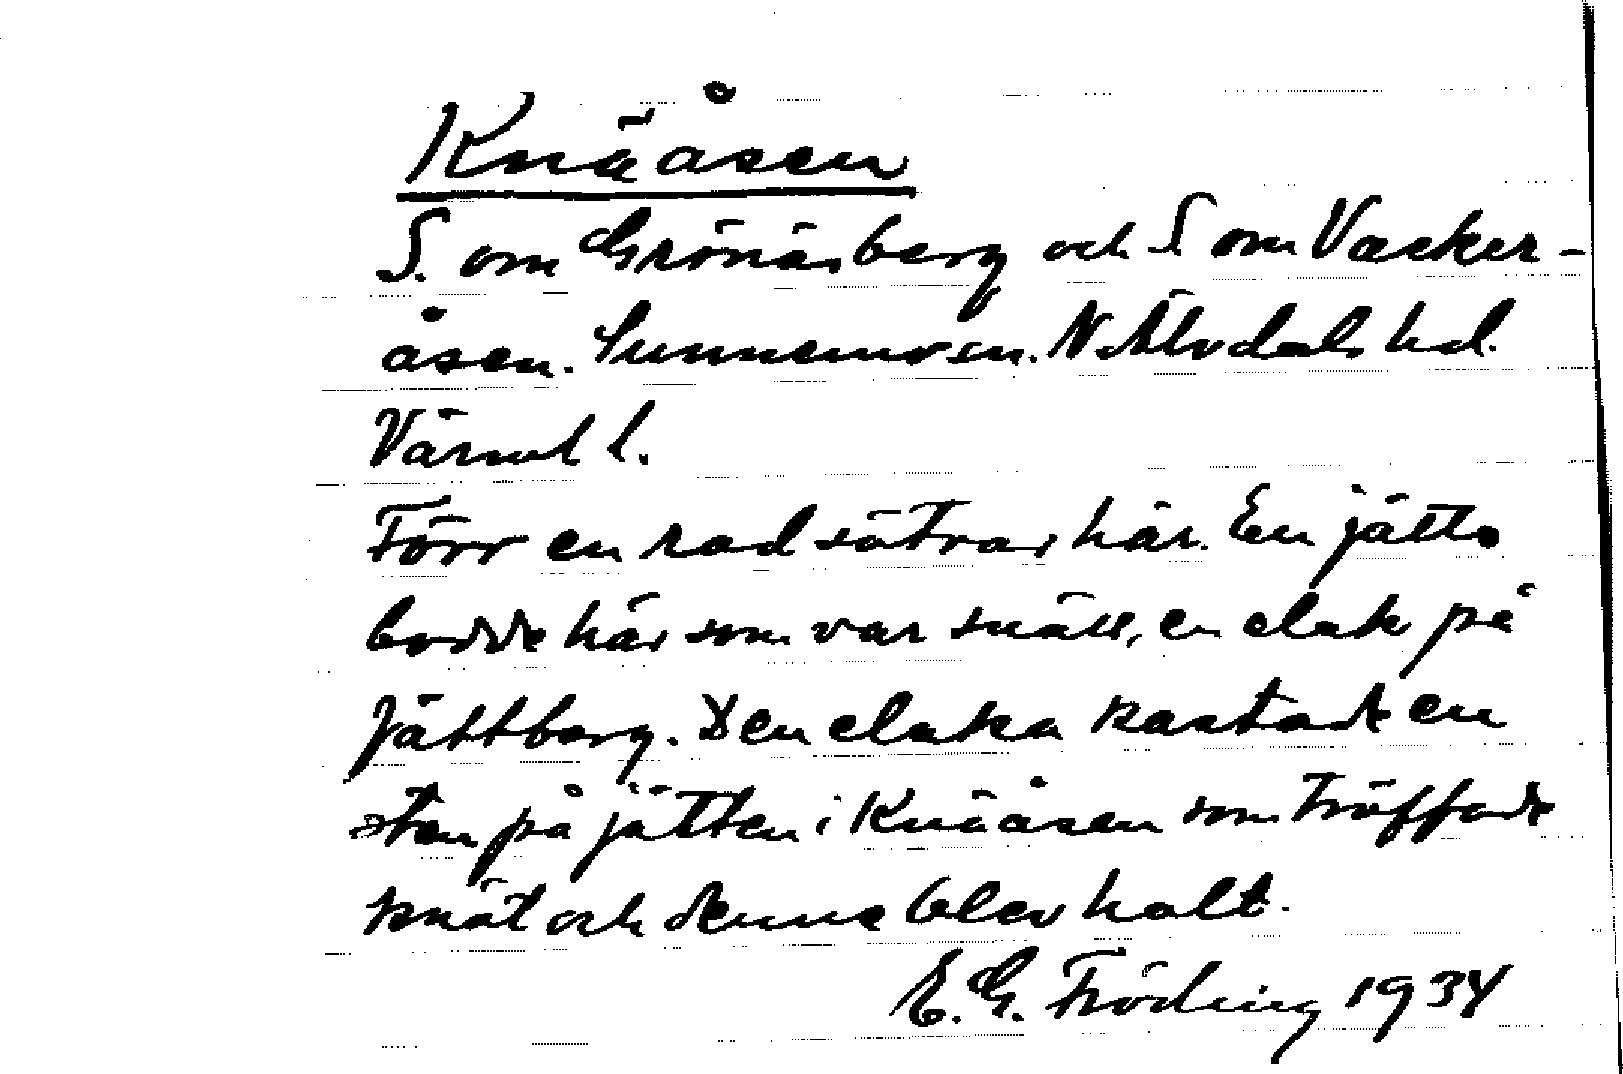 Knäåsen
S. om Grönäsberg och S om Vacker-
åsen. Sunnemo sn. N. Älvdals hd.
Värml l.
Förr en rad sätrar här. En jätte
bodde här som var snäll, en elak på
Jättberg. Den elaka kastade en
sten på jätten i Knäåsen som träffade
knät och denne blev halt.
E. G. Fröding 1934